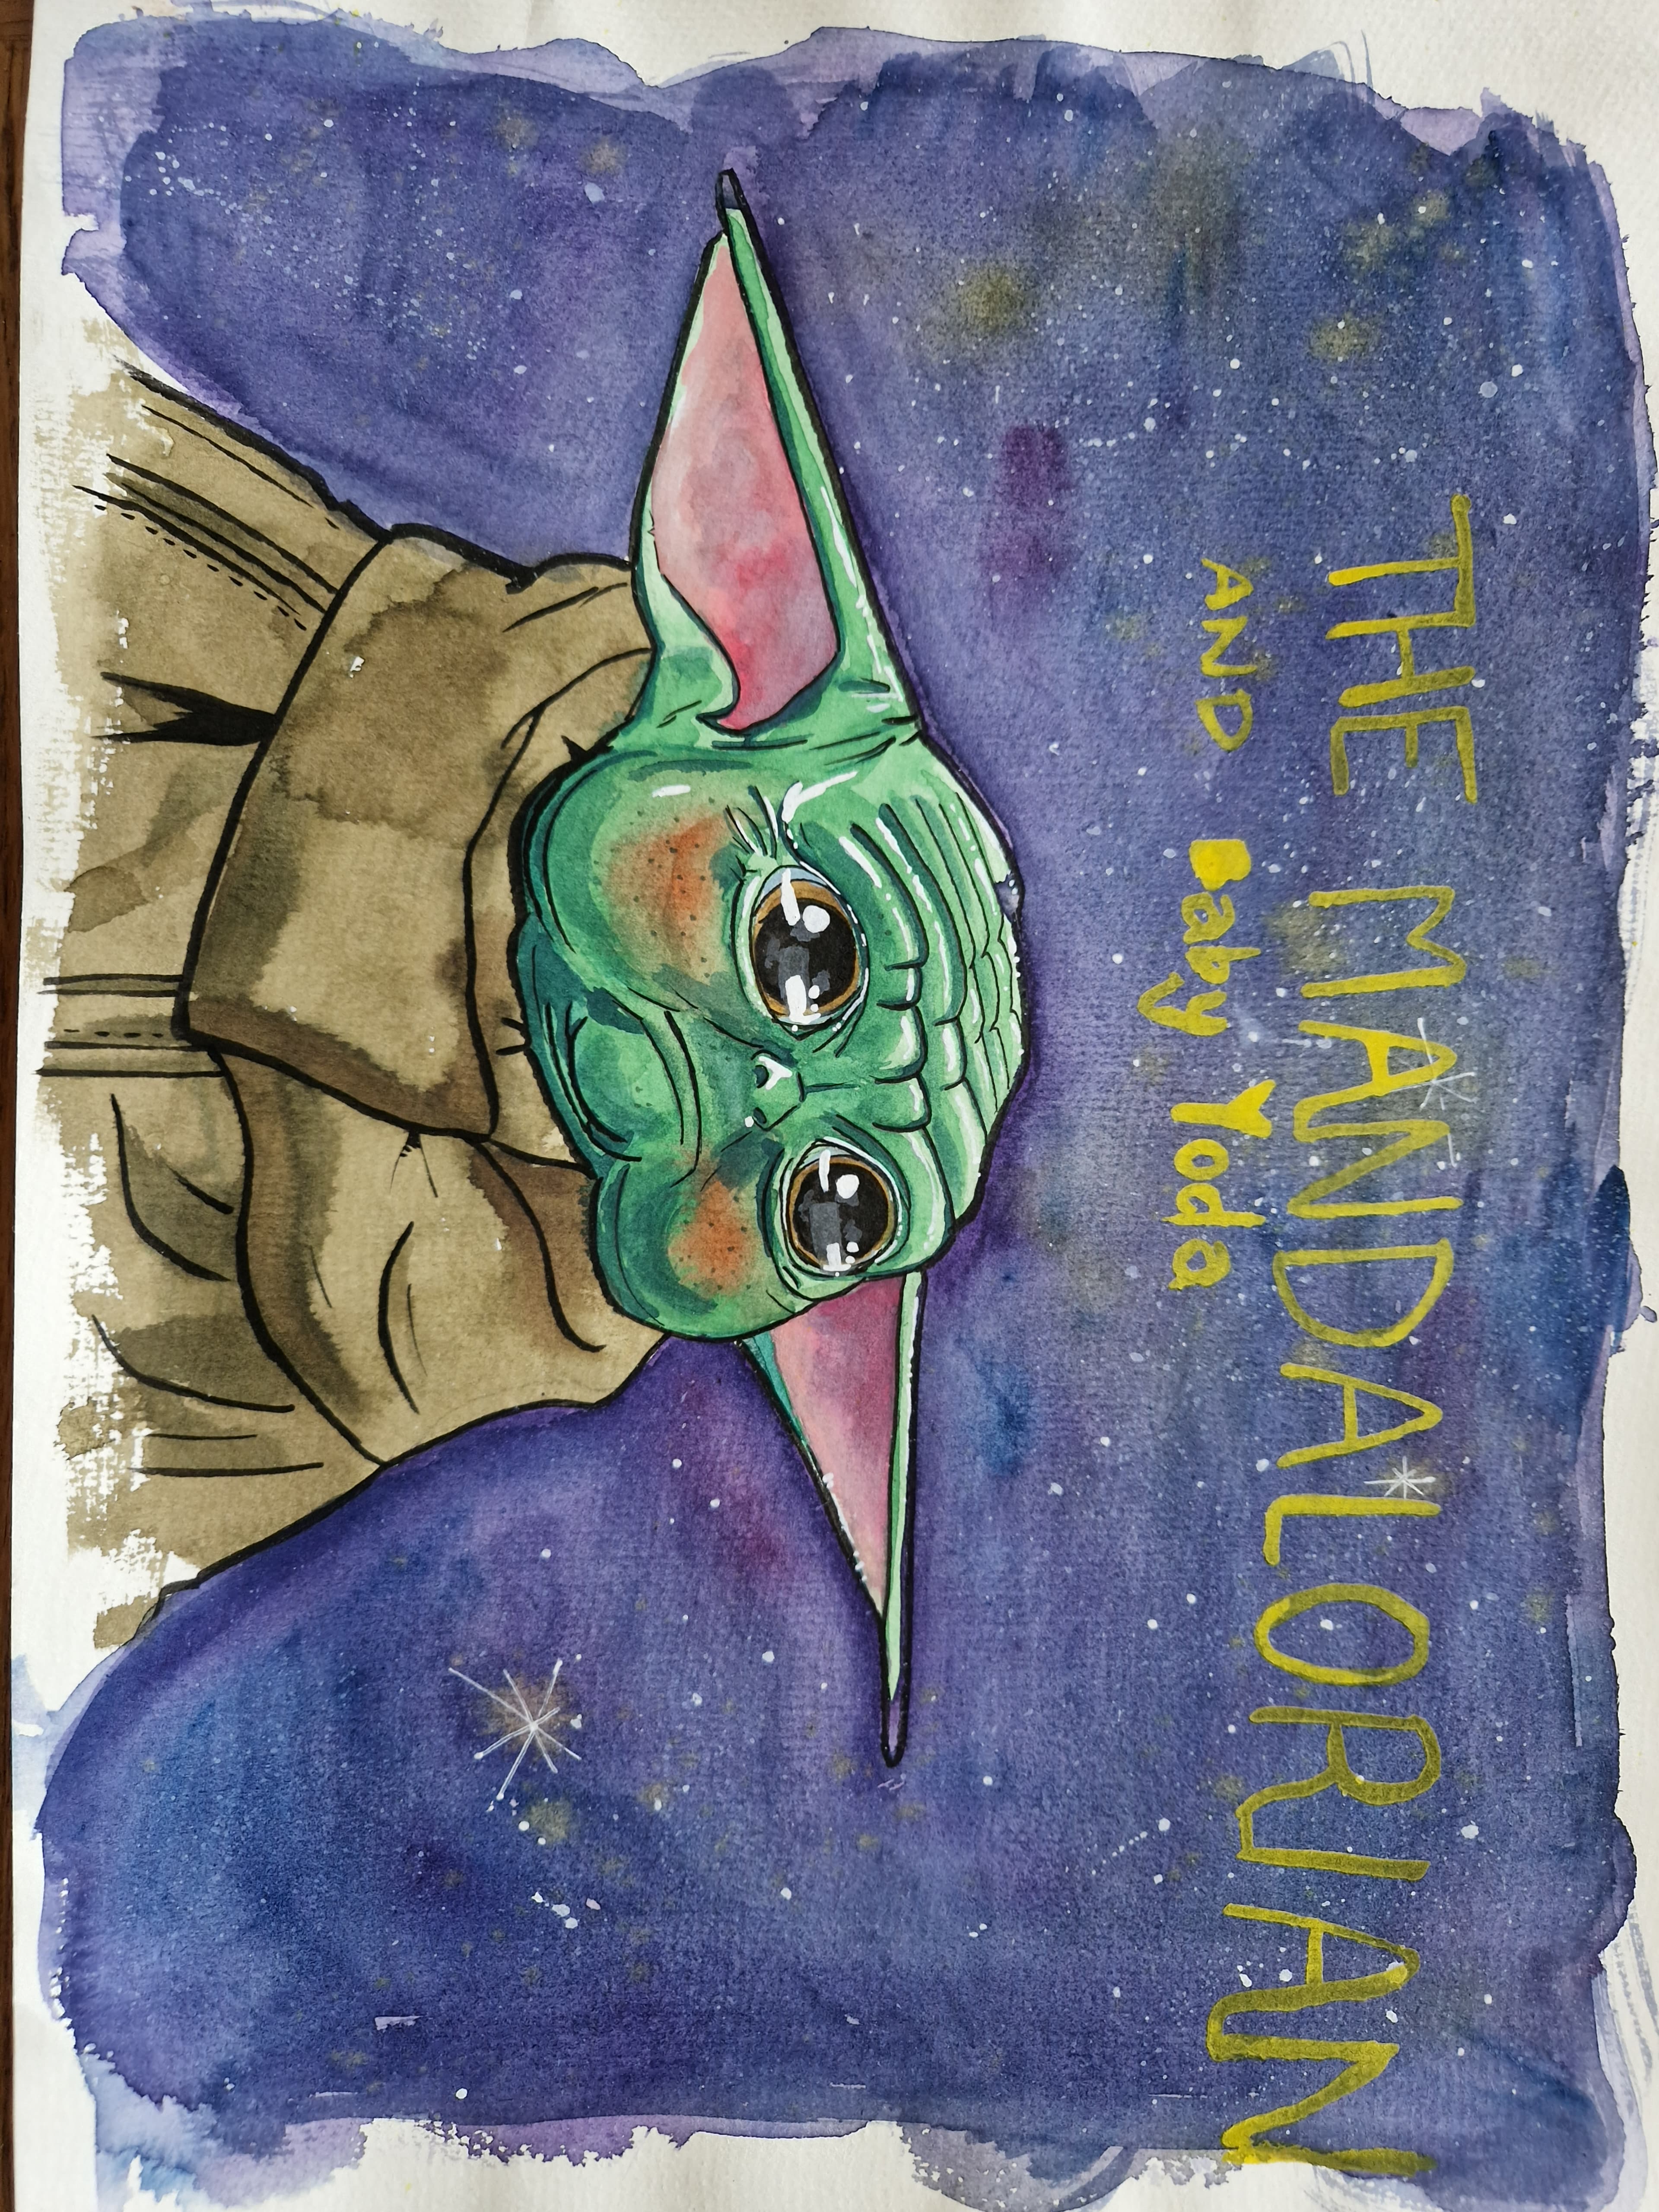 THE MANDALORIAN
AND Baby Yoda